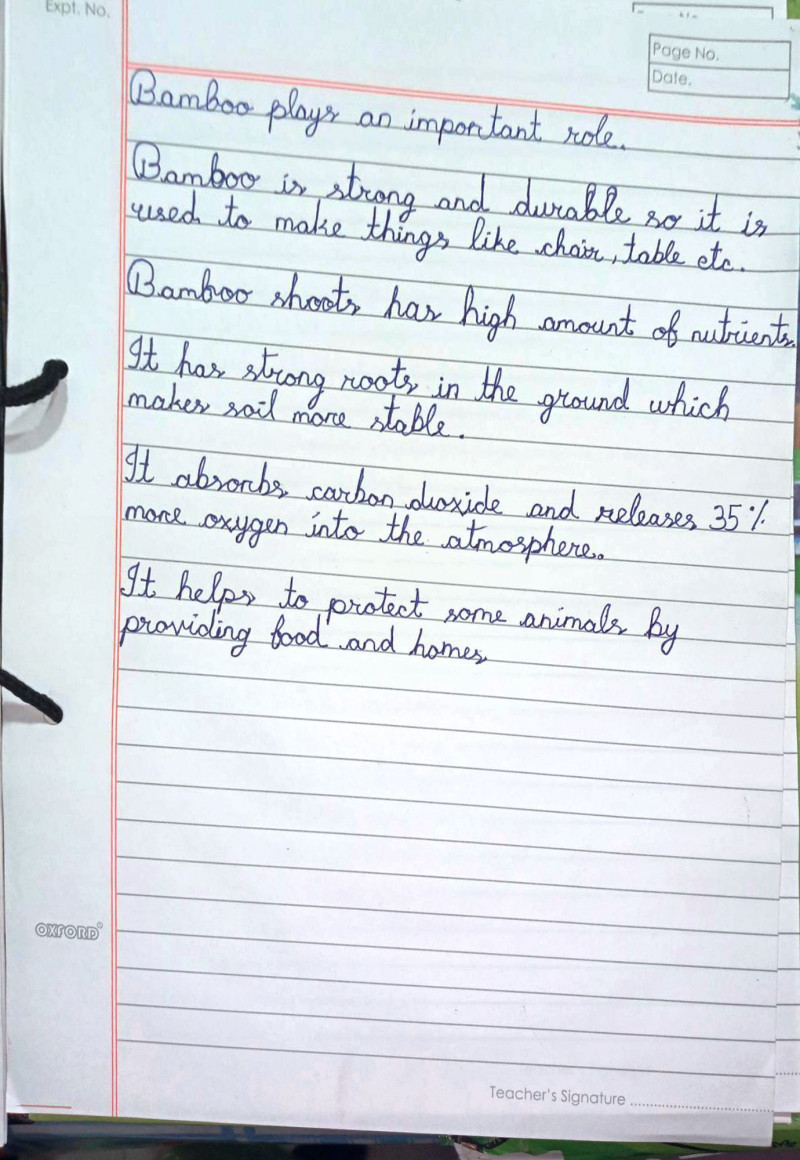 Expt. No.
Page No.
Date.
Bamboo plays an important role.
Bamboo is strong and durable so it is
used to make things like chair, table etc.
Bamboo shoots has high amount of nutrients.
It has strong roots in the ground which
makes soil more stable.
It absorbs carbon dioxide and releases 35%
more oxygen into the atmosphere.
It helps to protect some animals by
providing food and homes
OXFORD
Teacher's Signature